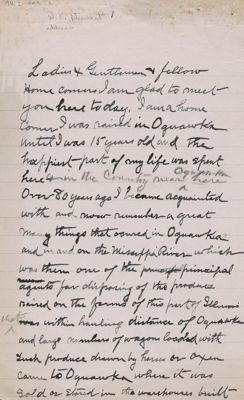 1
Ladies & Gentlemen & fellow
Home comers I am glad to meet
you here today, I am a home
comer I was raised in Oquawka
Until I was 15 years old and the
happiest part of my life was spent
here & on the Country near Oquawka here
Over 80 years ago I became acquainted
with and now remember a great
many things that occured in Oquawka
and in and on the Missippi River which
was then one of the principal
agents for disposing of the produce
raised on the farms of this part of Illinois
that was within hauling distance of Oquawka
and large numbers of wagons loaded with
such produce drawn by horses or oxen
came to Oquawka where it was
sold or stored in the warehouses built